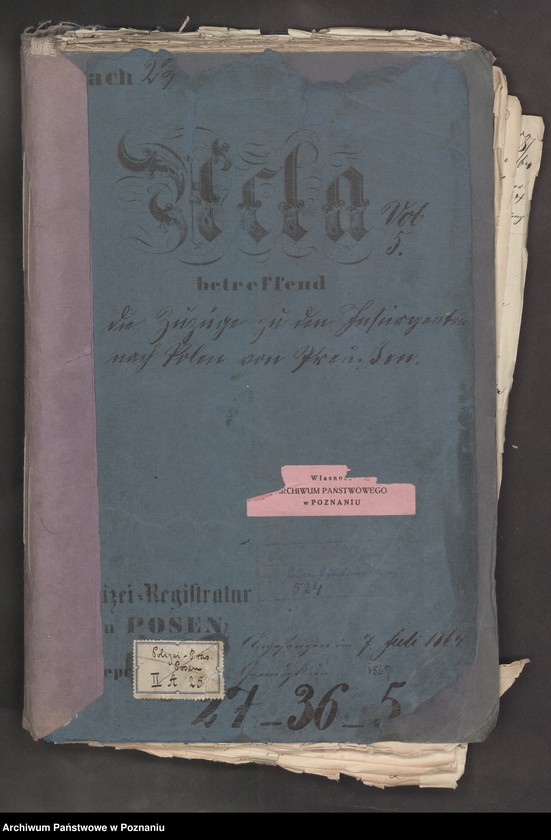 ach 29
Acta
Vol
5.
betreffend
die Zuzüge zu den Insurgenten
nach Polen von Preußen.
Własnoś
ARCHIWUM PAŃSTWOWEGO
w POZNANIU
524
izei-Registratur
POSEN
7. Juli 1864
1867
Polizei-Präs.
Posen
II A 25
27-36-5
Archiwum Państwowe w Poznaniu